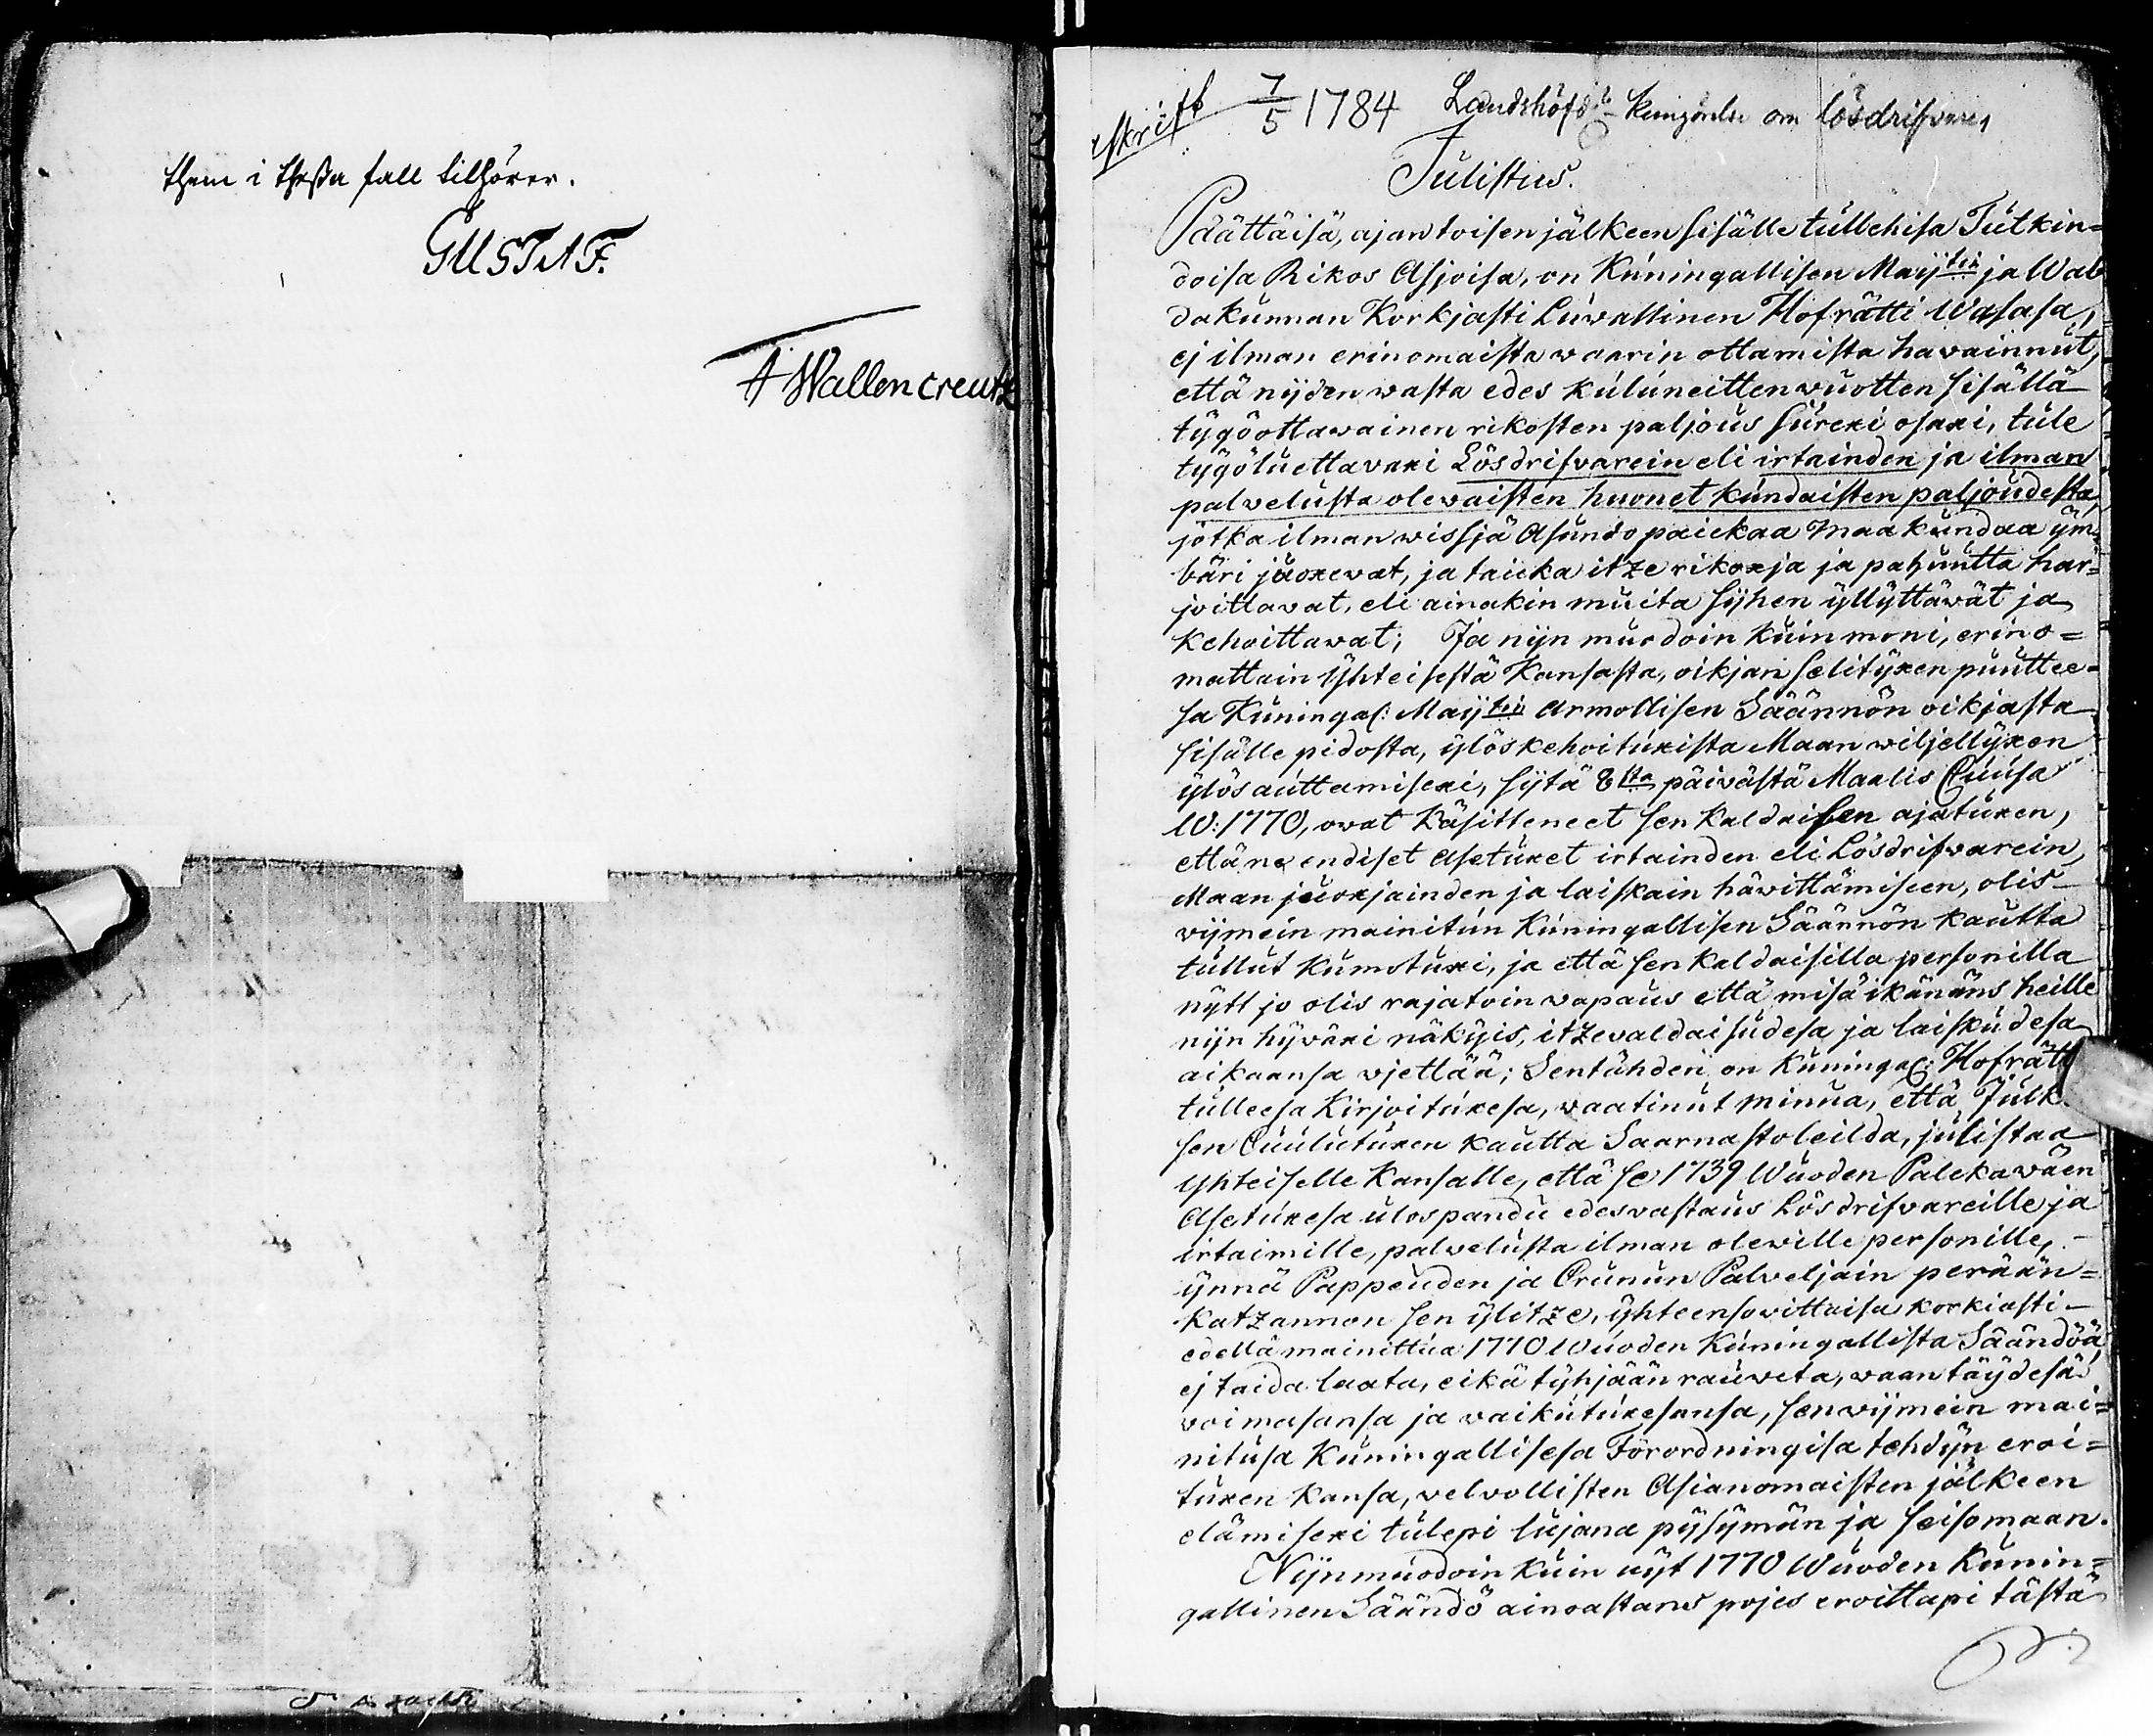 them i theßa fall tillhörer.
GUSTAF.
A Wallencreutz
skrift 7/5 1784 Landshöfd:s kungörelse om lösdrifvare,
Julistus.
Päättäisä, ajan toisen jälkeen sisälle tullehisa Tutkin=
doisa Rikos Asjoisa, on Kuningallisen Maij:tin ja Wal
dakunnan Korkjasti Luvallinen Hofrätti Wasasa,
ej ilman erinomaista waarin ottamista havainnut,
että nijden wasta edes kuluneitten wuotten sisällä
tygöottawainen rikosten paljous surexi osaxi, tule
tygöluettavaxi Lösdrifvarein eli irtainden ja ilman
palvelusta olevaisten huonet kundaisten paljoudesta,
jotka ilman wissjä Asundo paickaa maakundaa ym=
bäri juoxevat, ja taicka itze rikoxja ja pahuutta har=
joittavat, eli ainakin muita sijhen yllyttävät ja
kehoittavat; Ja nijn muodoin kuin moni, erino=
mattain Yhteisestä Kansasta, oikjan selityxen puuttee=
sa Kuningal: Maij:tin Armollisen Säännön oikjasta
sisälle pidosta, ylöskehoituxista Maanwiljellyxen
ylösauttamisexi, sijtä 8:sta päivästä Maalis Cuusa
W: 1770, ovat käsitteneet sen kaldaisen ajatuxen,
että ne endiset Asetuxet irtainden eli Lösdrifvarein,
Maan juoxjainden ja laiskain hävittämiseen, olis
vijmein mainitun Kuningallisen Säännön kautta
tullut kumotuxi, ja että sen kaldaisilla personilla
nytt jo olis rajatoin vapaus että misä ikänäns heille
nijn hyväxi näkyis, itzevaldaisudesa ja laiskudesa
aikaansa vjettää; Sentähden on Kuningal: Hofrätt
tulleesa Kirjoituxesa, vaatinut minua, että Julk
sen Cuulutuxen kautta Saarnastoleilda, julistaa
Yhteiselle Kansalle, että se 1739 Wuoden Palckawäen
Asetuxesa ulospandu edesvastaus Lösdrifvareille ja
irtaimille, palvelusta ilman oleville personille,
ynnä Pappeuden ja Crunun Palveljain perään=
katzannon sen ylitze, yhteensovittaisa korkiasti
edellä mainittua 1770 Wuoden Kuningallista Säändöä,
ej taida laata, eikä tyhjään rauveta, waan täydesä
voimasansa ja vaikutuxesansa, sen vijmein mai=
nitusa Kuningallisesa Förordningisa tehdyn eroi=
tuxen kansa, velvollisten Asianomaisten jälkeen
elämisexi tulepi lujana pysymän ja seisomaan.
Nijnmuodoin kuin nyt 1770 Wuoden Kunin=
gallinen Säändö ainoastans pojes eroittapi tästä